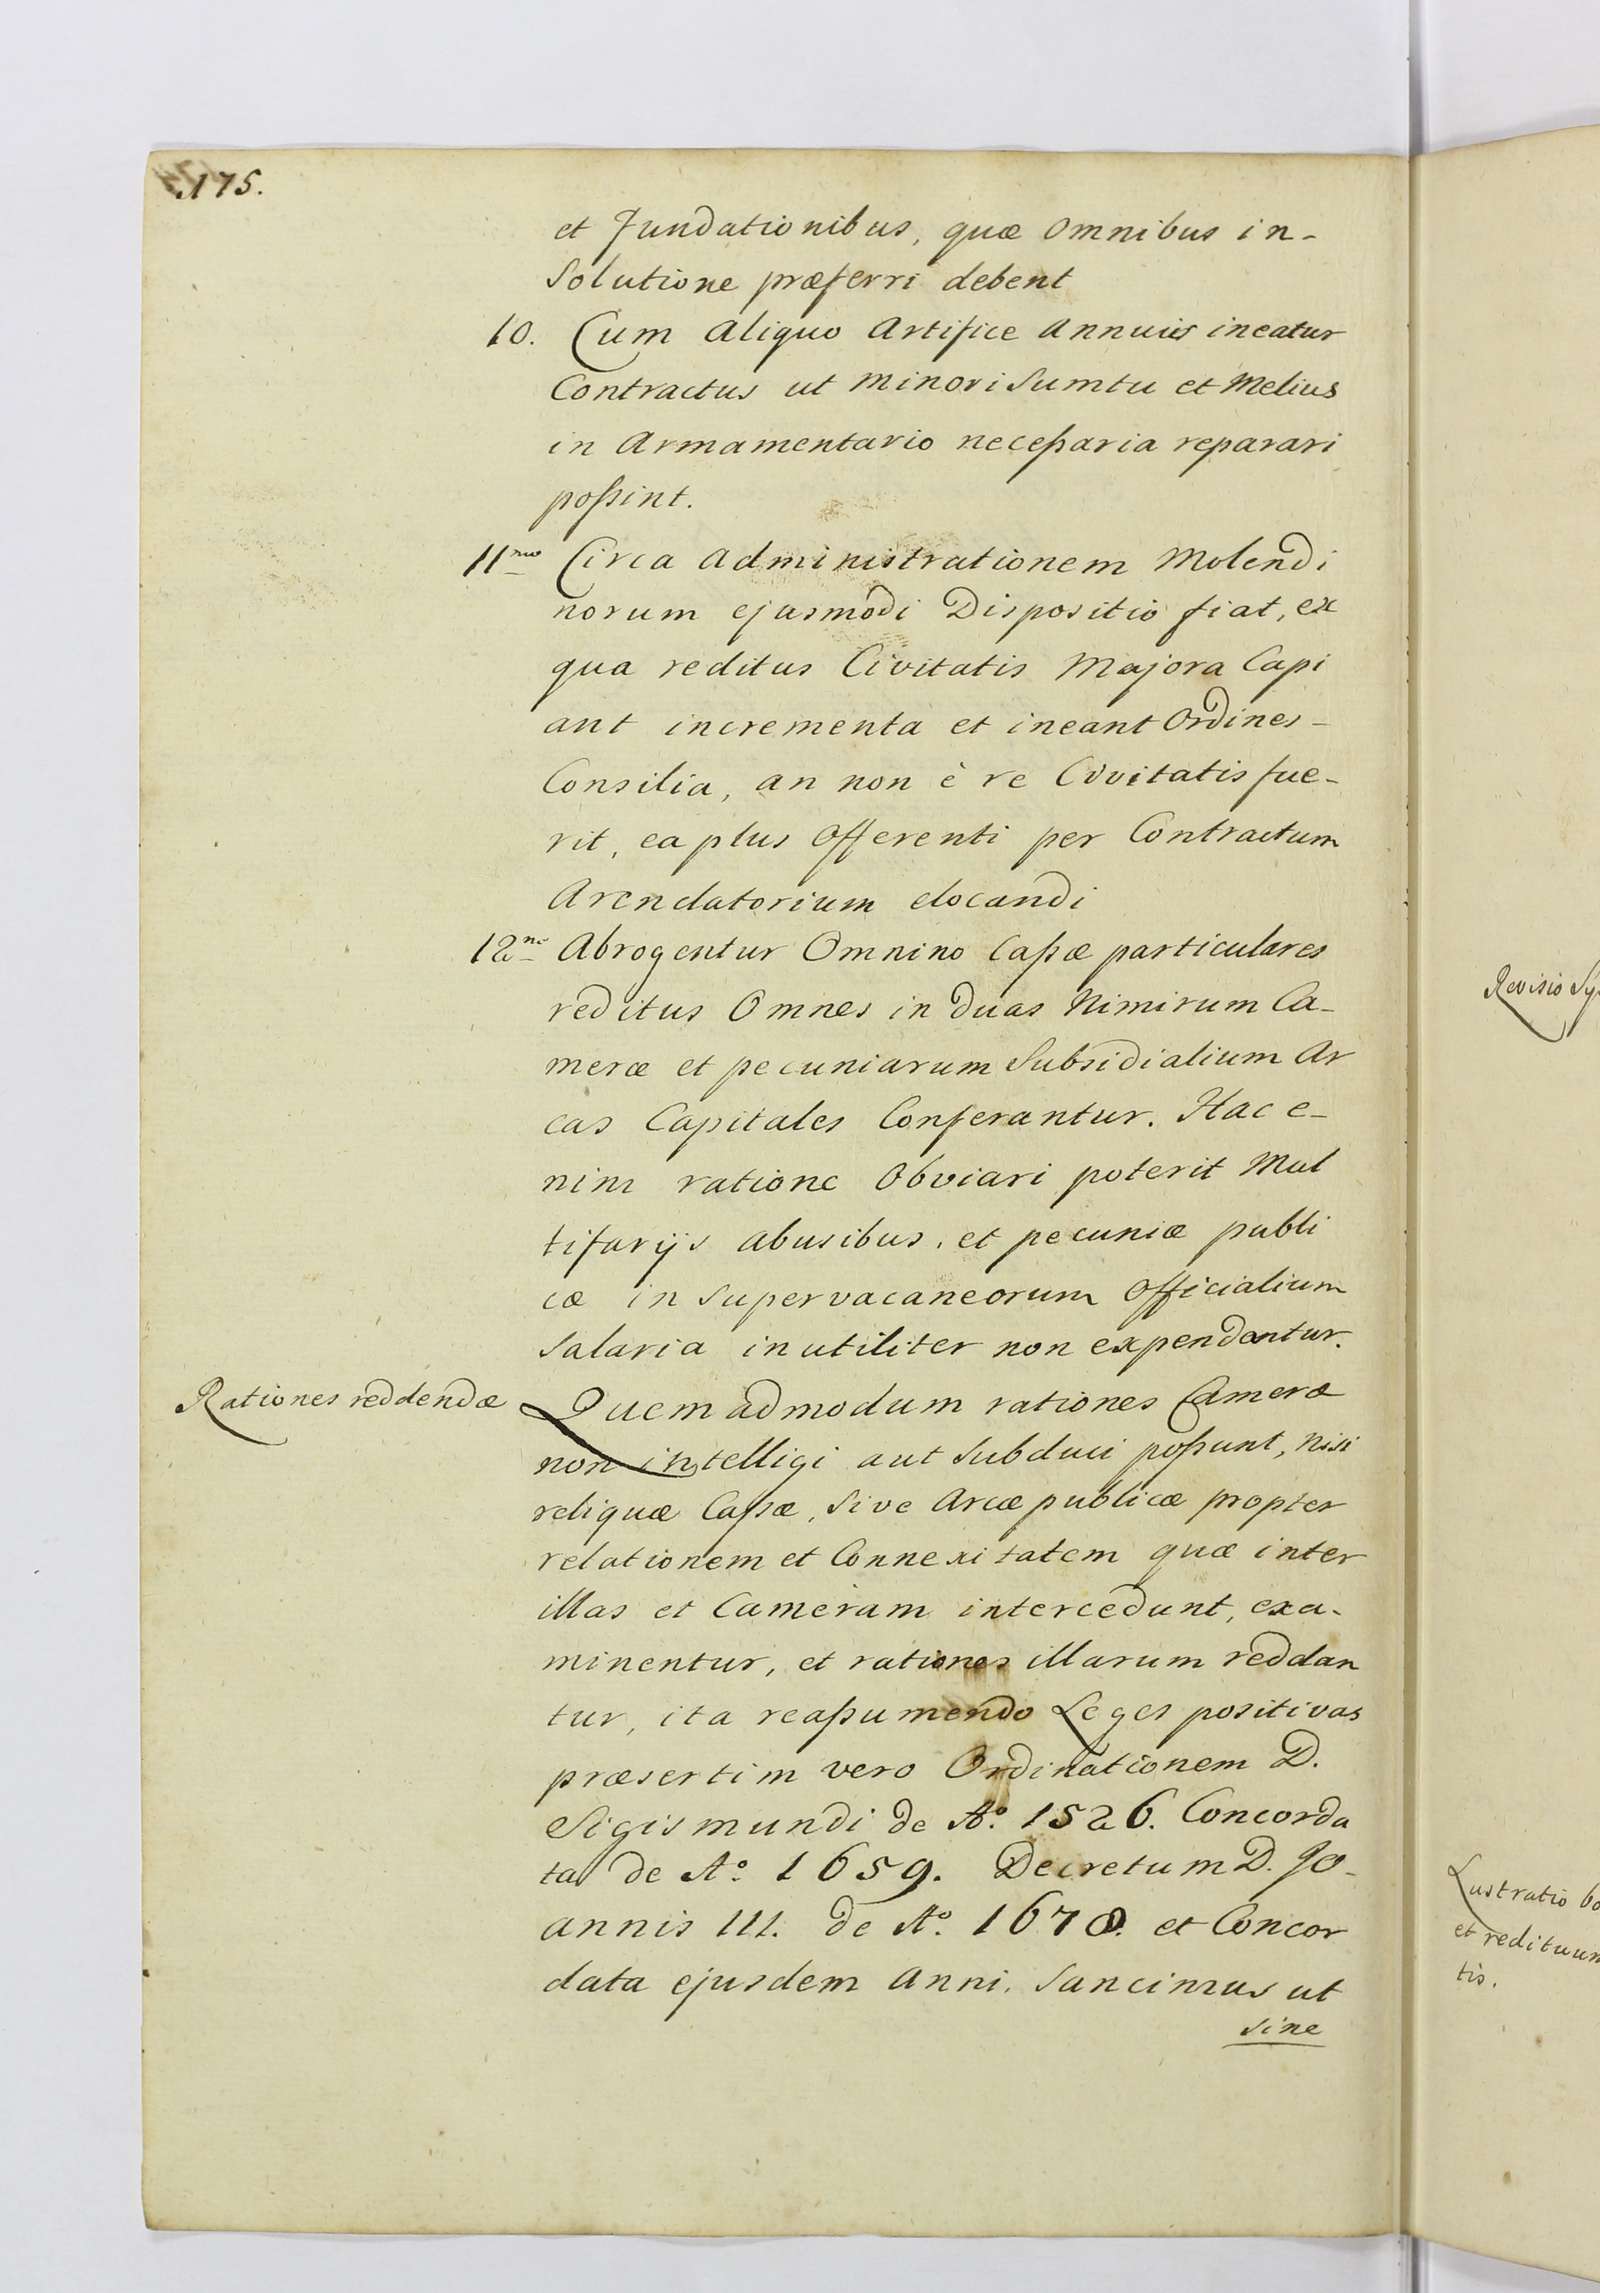 175.
et fundationibus, quæ omnibus in-
Solutione præferri debent
10. Cum aliquo Artifice annuus ineatur
Contractus ut minori Sumtu et Melius
in Armamentario neceßaria reparari
poßint.
11mo Circa administrationem Molendi
norum ejusmodi Dispositio fiat, ex
qua reditus Civitatis Majora Capi
ant incrementa et ineant Ordines-
Consilia, an non è re Civitatis fue-
rit, ea plus Offerenti per Contractum
Arendatorium elocandi
12mo Abrogentur Omnino Caßæ particulares
reditus Omnes in duas Nimirum Ca-
meræ et pecuniarum Subsidialium Ar
cas Capitales Conferantur. Hac e-
nim ratione Obviari poterit Mul
tifarijs abusibus, et pecuniæ publi
cæ in Supervacaneorum Officialium
Salaria inutiliter non expendantur.
Rationes reddendæ
Quemadmodum rationes Cameræ
non intelligi aut Subduci poßunt, nisi
reliquæ Caßæ, Sive Arcæ publicæ propter
relationem et Connexitatem quæ inter
illas et Cameram intercedunt, exa-
minentur, et rationes illarum reddan
tur, ita reaßumendo Leges positivas
præsertim vero Ordinationem D.
Sigismundi de Ao. 1526. Concorda
ta de Ao. 1659. Decretum D. Jo-
annis III. de Ao. 1678. et Concor
data ejusdem Anni. Sancimus ut
sine
Revisio
Lustratio bo
et redituum
tis.